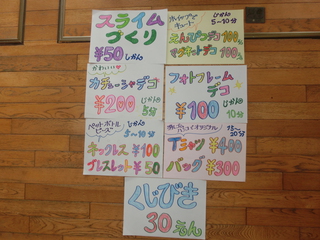 スライム
づくり
¥50 じかん
5〜10分
えんぴつデコ 100
マグネットデコ 100
かわいい♡
カチューシャデコ
¥200 じかん
5分
フォトフレーム
デコ
¥100 じかん
10分
ペットボトル
ビーズ
じかん
5〜10分
ネックレス ¥100
ブレスレット ¥50
オリジナル
15〜
20分
Tシャツ ¥400
バッグ ¥300
くじびき
30えん